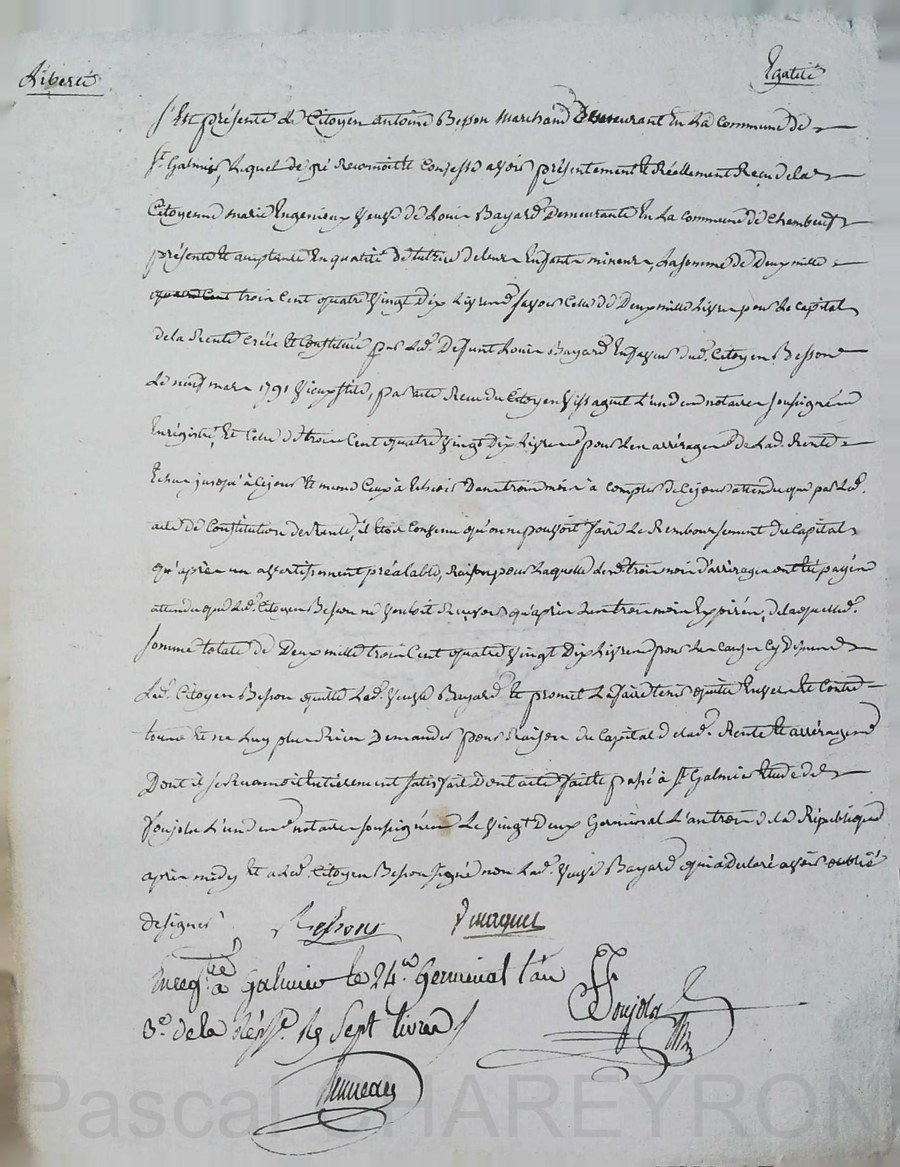 Liberté
Egalité
S'est présenté Le Citoyen antoine Besson marchand Demeurant En La commune de
St. Galmier, Lequel de gré Reconnoit et Confesse avoir présentement et Réellement Reçu de la
Citoyenne marie Engenieux Veuve de Louis Bayard Demeurante En La commune de Chambeuf
présente et acceptante En qualité de tutrice de leurs Enfants mineurs, La somme de Deux mille
trois Cent quatre Vingt Dix Livres Savoir Celle de Deux mille Livres pour Le capital
de la Rente Créée et Constituée par Led. Defunt Louis Bayard En faveur dud. Citoyen Besson
Le neuf mars 1791 Vieux stile, par acte Recu du Citoyen L'un des notaires soussignés
Enregistré, Et Celle de trois Cent quatre Vingt Dix Livres pour Les arrérages de Lad. Rente
Echus jusqu'à Ce jour Et meme Ceux à Echeoir Dans trois mois à compter de Ce jour attendu que par Led.
acte de Constitution de rente, il étoit Convenu qu'on ne pouvoit faire Le Remboursement du Capital
qu'après un avertissement préalable, Raison pour Laquelle lesd. trois mois d'arrérages ont été payés
attendu que Led. Citoyen Besson ne Vouloit Recevoir qu'après Les trois mois Expirés, de laquelle
somme totale de Deux mille trois Cent quatre Vingt Dix Livres pour Les causes Cy Dessus
Led. Citoyen Besson quitte Lad. Veuve Bayard Et promet La faire tenir quitte Envers et Contre
tous Et ne Luy plus Rien Demander pour Raison du Capital de lad. Rente et arrérages
Dont il se Reconnoit Entièrement satisfait Dont acte fait et passé à St. Galmier Etude de
Poujola L'un des notaires soussignés Le Vingt Deux Germinal L'an trois de la République
après midy Et a Led. Citoyen Besson signé non Lad. Veuve Bayard qui a Declaré avoir oublié
de signer
Besson
Enregtré à Galmier le 24 Germinal l'an
3e. de la Répe. R Sept livres
Poujola
Pascal CHAREYRON